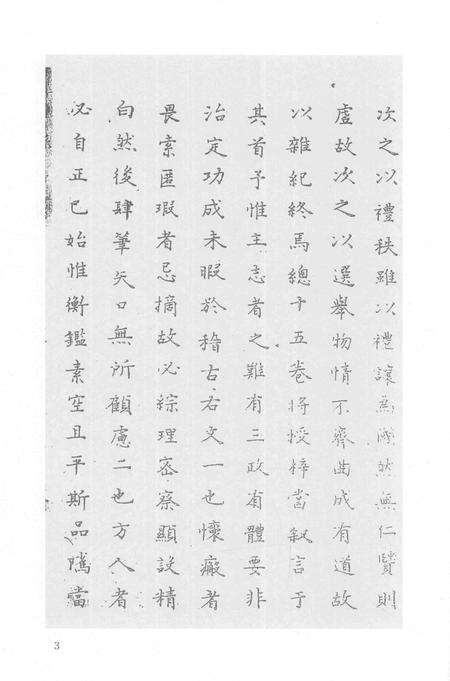 次之以禮秩雖以禮讓為國然無仁賢則
虛故次之以選舉物情不齊曲成有道故
以雜紀終焉總十五卷將授梓當叙言于
其首予惟主志者之難有三政有體要非
治定功成未暇於稽古右文一也懷瘢者
畏索匿瑕者忌摘故必綜理密察顯設精
白然後肆筆矢口無所顧慮二也方人者
必自正己始惟衡鑑素空且平斯品騭當
3